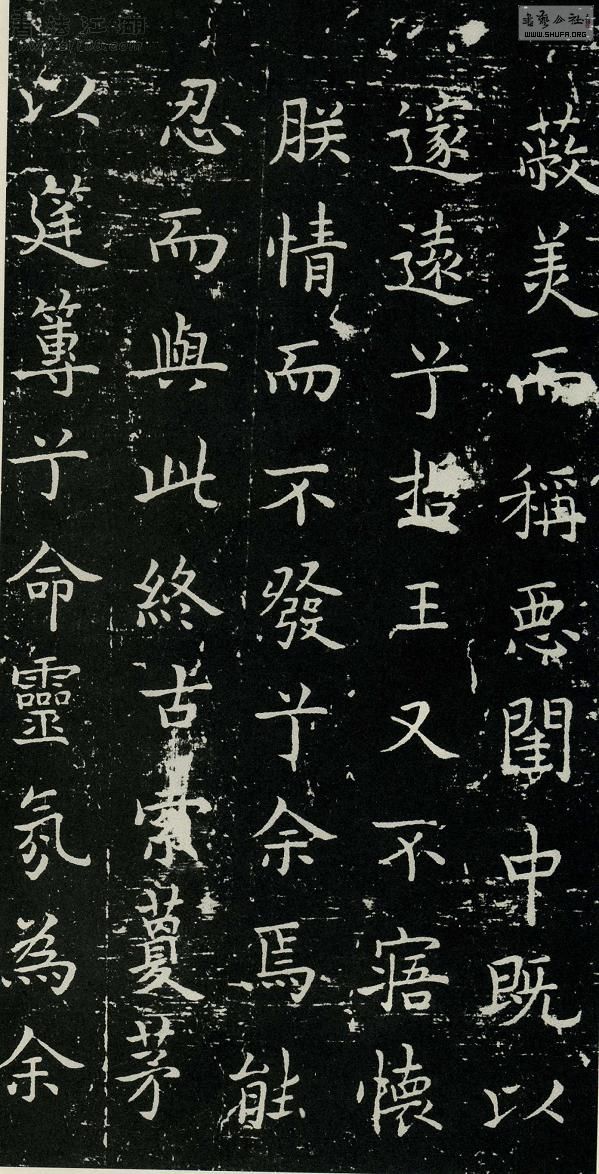 蔽美而稱惡閨中既以
邃遠兮哲王又不寤懷
朕情而不發兮余焉能
忍而與此終古索藑茅
以筳篿兮命靈氛為余
书法江湖
书艺公社
WWW.SHUFA.ORG